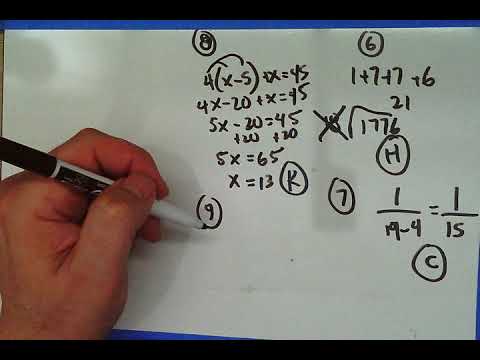 8
4(x-5)+x=45
4x-20+x=45
5x-20=45
+20 +20
5x=65
x=13 K
9
6
1+7+7+6
21
1776
H
7
1/19-4 = 1/15
C